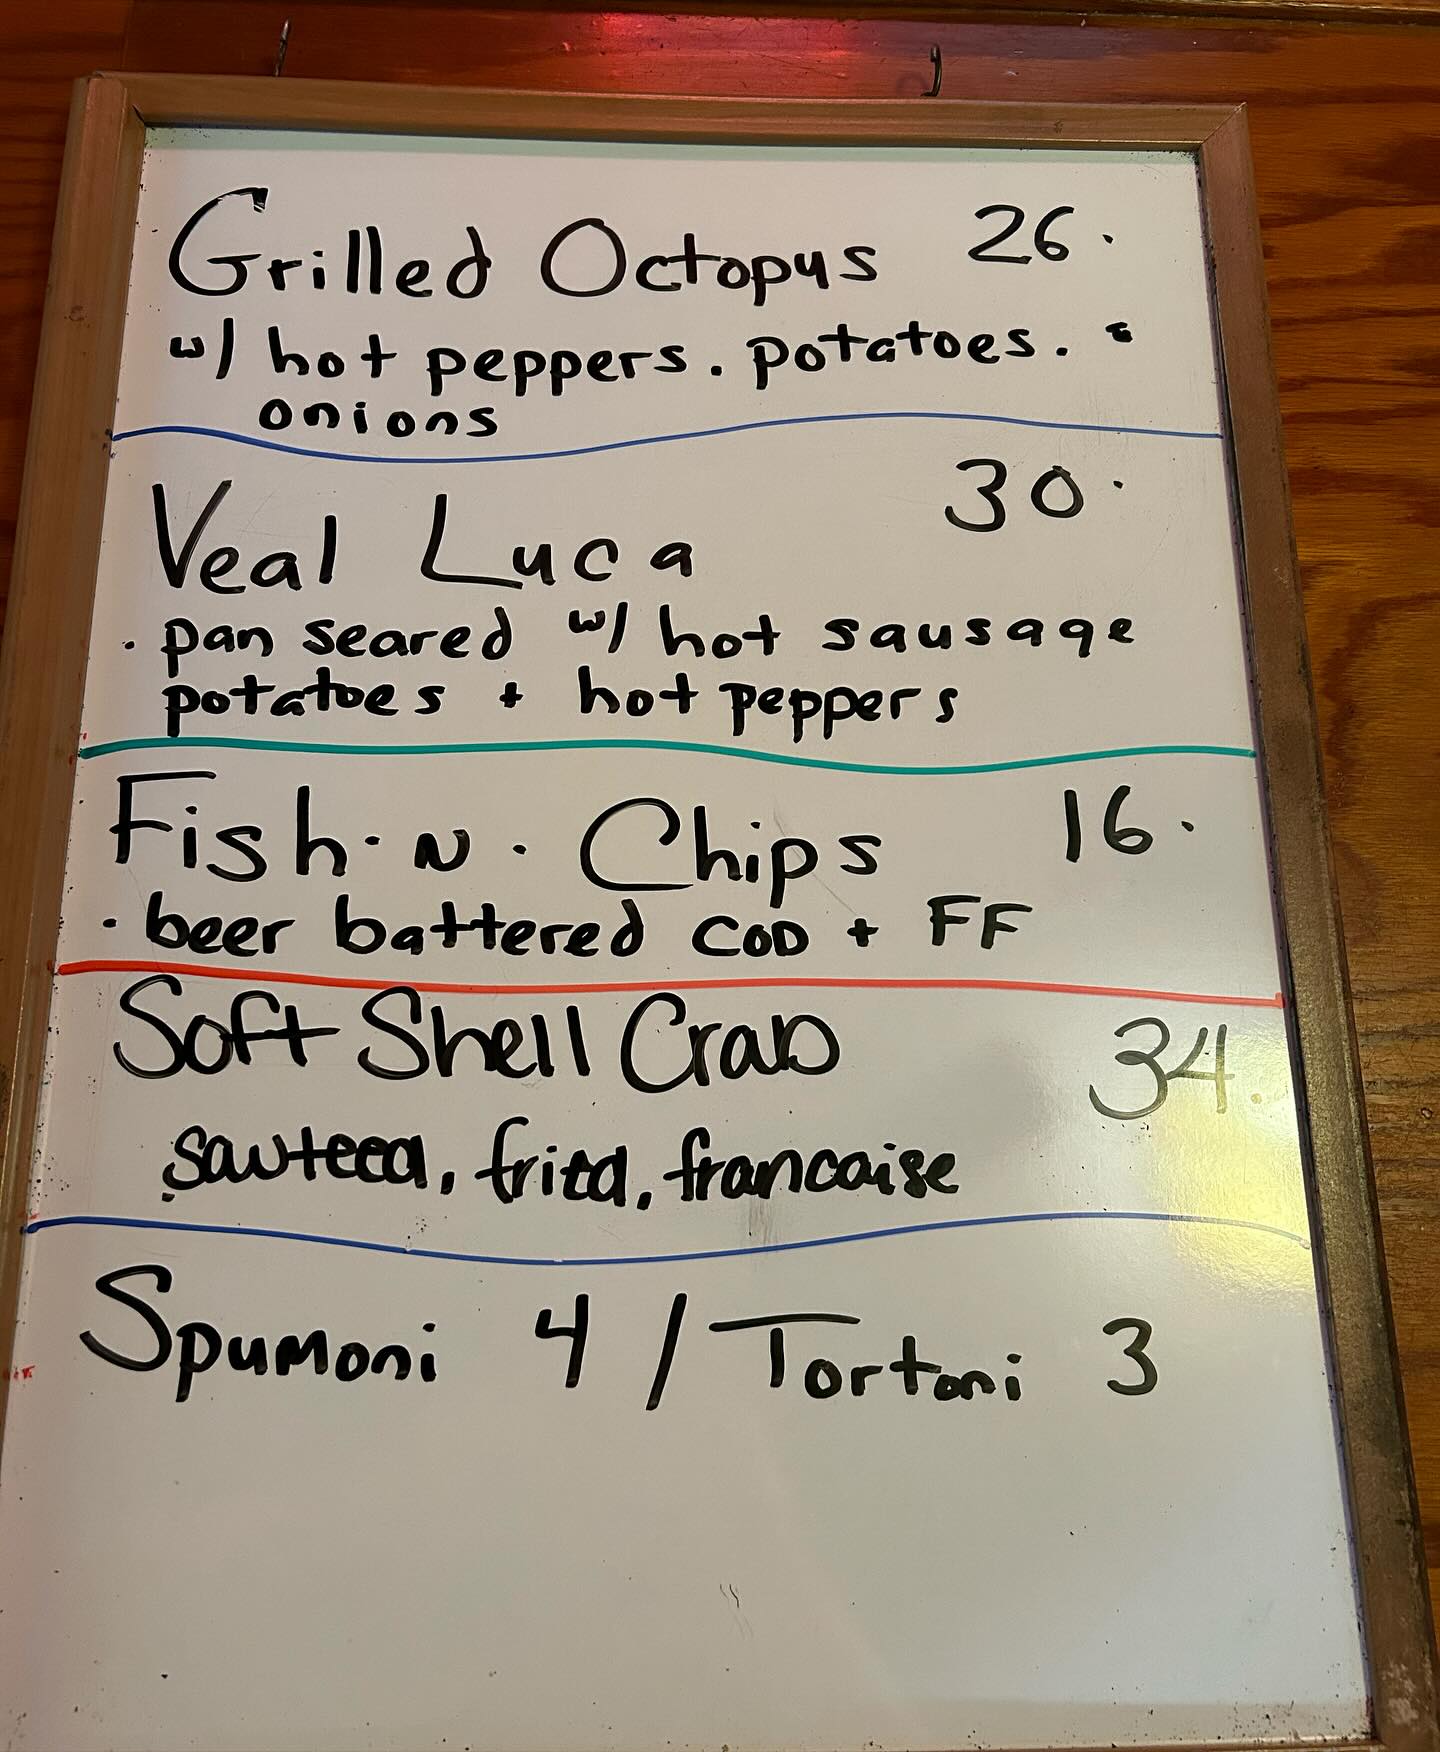 Grilled Octopus 26.
w/ hot peppers. potatoes. &
onions
Veal Luca 30.
. pan seared w/ hot sausage
potatoes + hot peppers
Fish · N · Chips 16.
. beer battered COD + FF
Soft Shell Crab 34.
sauteed, fried, francaise
Spumoni 4 / Tortoni 3